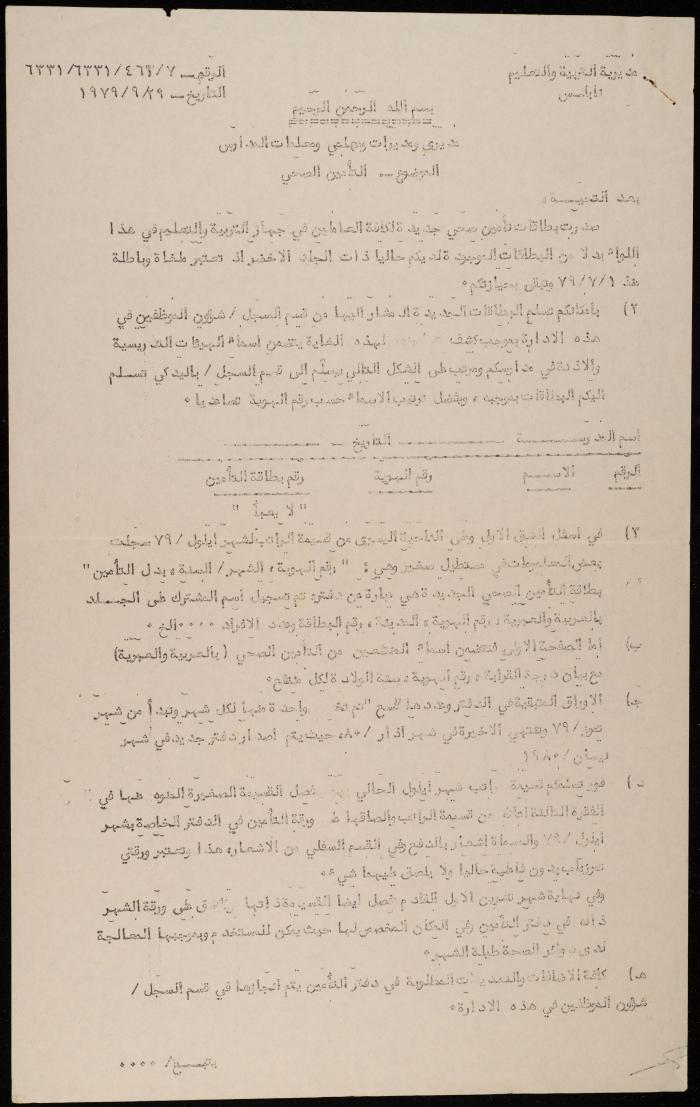 مديرية التربية والتعليم
نابلس
الرقم ـ ٦٣٣١/٦٣٣١/٤٦٣/٧
التاريخ ـ ١٩٧٩/٩/٢٩
بسم الله الرحمن الرحيم
مديري ومديرات ومعلمي ومعلمات المدارس
الموضوع ـ التأمين الصحي
بعد التحيـــة،
صدرت بطاقات تأمين صحي جديدة لكافة العاملين في جهاز التربية والتعليم في هذا
اللواء بدلا من البطاقات الموجودة لديكم حاليا ذات الجلد الاخضر اذ تعتبر ملغاة وباطلة
منذ ٧٩/٧/١ وتبقى بحيازتكم٠
٢) بامكانكم تسلم البطاقات الجديدة المشار اليها من قسم السجل / شؤون الموظفين في
هذه الادارة بموجب كشف لهذه الغاية يتضمن اسماء الهيئات التدريسية
والاذنة في مدارسكم ومرتب على الشكل التالي يسلم الى قسم السجل / باليد كي تسلم
اليكم البطاقات بموجبه، ويفضل ترتيب الاسماء حسب رقم الهوية تصاعديا٠
اسم المدرســـة ــــــــ التاريخ ـ ــــــــ
الرقم الاســـم رقم الهوية رقم بطاقة التأمين
" لا يعبأ "
٣) في اسفل الشق الاول وعلى الناحية اليسرى من قسيمة الراتب لشهر ايلول /٧٩ سجلت
بعض المعلومات في مستطيل صغير وهي : " رقم الهوية، الشهر/ السنة، بدل التأمين "
بطاقة التأمين الصحي الجديدة هي عبارة عن دفتر، تم تسجيل اسم المشترك على الجـلـد
بالعربية والعبرية، رقم الهوية، المدينة، رقم البطاقة وعدد الافراد ٠٠٠٠الخ٠
ب) اما الصفحة الاولى فتتضمن اسماء المنتفعين من التأمين الصحي (بالعربية والعبرية)
مع بيان درجة القرابة، رقم الهوية، سنة الولادة لكل منتفع٠
ج) الاوراق المتبقية في الدفتر وعددها واحدة منها لكل شهر وتبدأ من شهر
تموز/٧٩ وتنتهي الاخيرة في شهر اذار /٨٠، حيث يتم اصدار دفتر جديد في شهر
نيسان /١٩٨٠
د) فور تسلمكم قسيمة راتب شهر ايلول الحالي فصل القسيمة الصغيرة المنوه عنها في
الفقرة الثالثة اعلاه من قسيمة الراتب والصاقها ورقة التأمين في الدفتر الخاصة بشهر
ايلول /٧٩ والمسماة اشعار بالدفع وفي القسم السفلي من الاشعار، هذا وتعتبر ورقتي
تموز وآب بدون فاعلية حاليا ولا يلصق عليهما شيء٠
وفي نهاية شهر تشرين الاول القادم تفصل ايضا القسيمة ذاتها وتلصق على ورقة الشهر
ذاته في دفتر التأمين وفي المكان المخصص لها حيث يمكن للمستخدم وبموجبها المعالجة
لدى دوائر الصحة طيلة الشهر٠
هـ) كافة الاضافات والتعديلات المطلوبة في دفتر التأمين يتم انجازها في قسم السجل /
شؤون الموظفين في هذه الادارة٠
يتبــع/ ٠٠٠٠